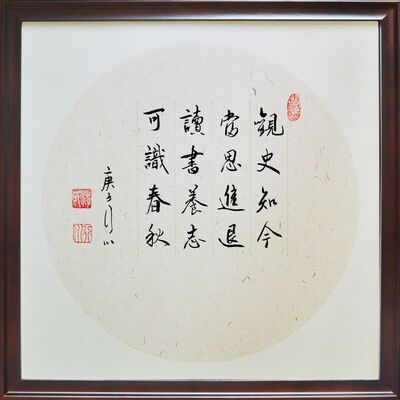 觀史知今
當思進退
讀書養志
可識春秋
庚子